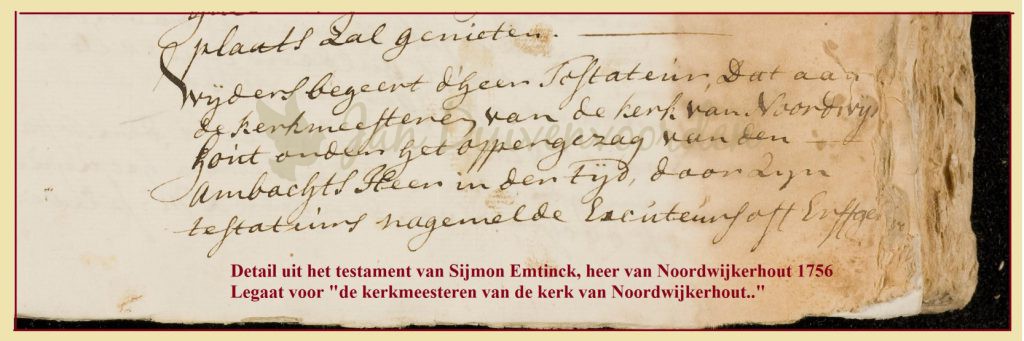 plaats zal genieten.
wijders begeert d'heer Testateur, Dat aan
de kerkmeesteren van de kerk van Noordwijk
hout onder het oppergezag van den
Ambachts Heer in der Tijd, door Zijn
testateurs nagemelde Executeurs oft Erffge
Detail uit het testament van Sijmon Emtinck, heer van Noordwijkerhout 1756
Legaat voor "de kerkmeesteren van de kerk van Noordwijkerhout.."